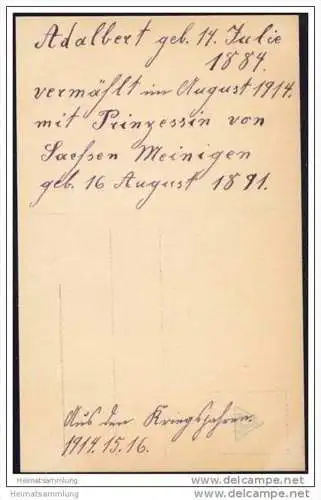 Adalbert geb. 14. Julie
1884.
vermählt im August 1914.
mit Prinzessin von
Sachsen Meinigen
geb. 16 August 1891.
Aus den Kriegsjahren
1914.15.16.
Heimatsammlung
Heimatsammlung
www.delcampe.net